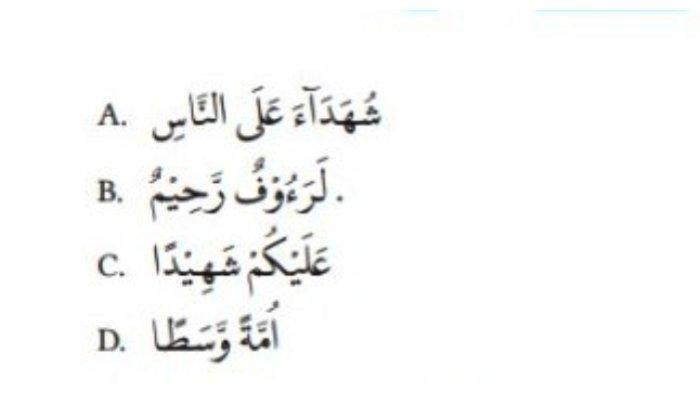 A. شُهَدَآءَ عَلَى النَّاسِ
B. لَرَءُوْفٌ رَّحِيْمٌ .
C. عَلَيْكُمْ شَهِيْدًا
D. اُمَّةً وَّسَطًا